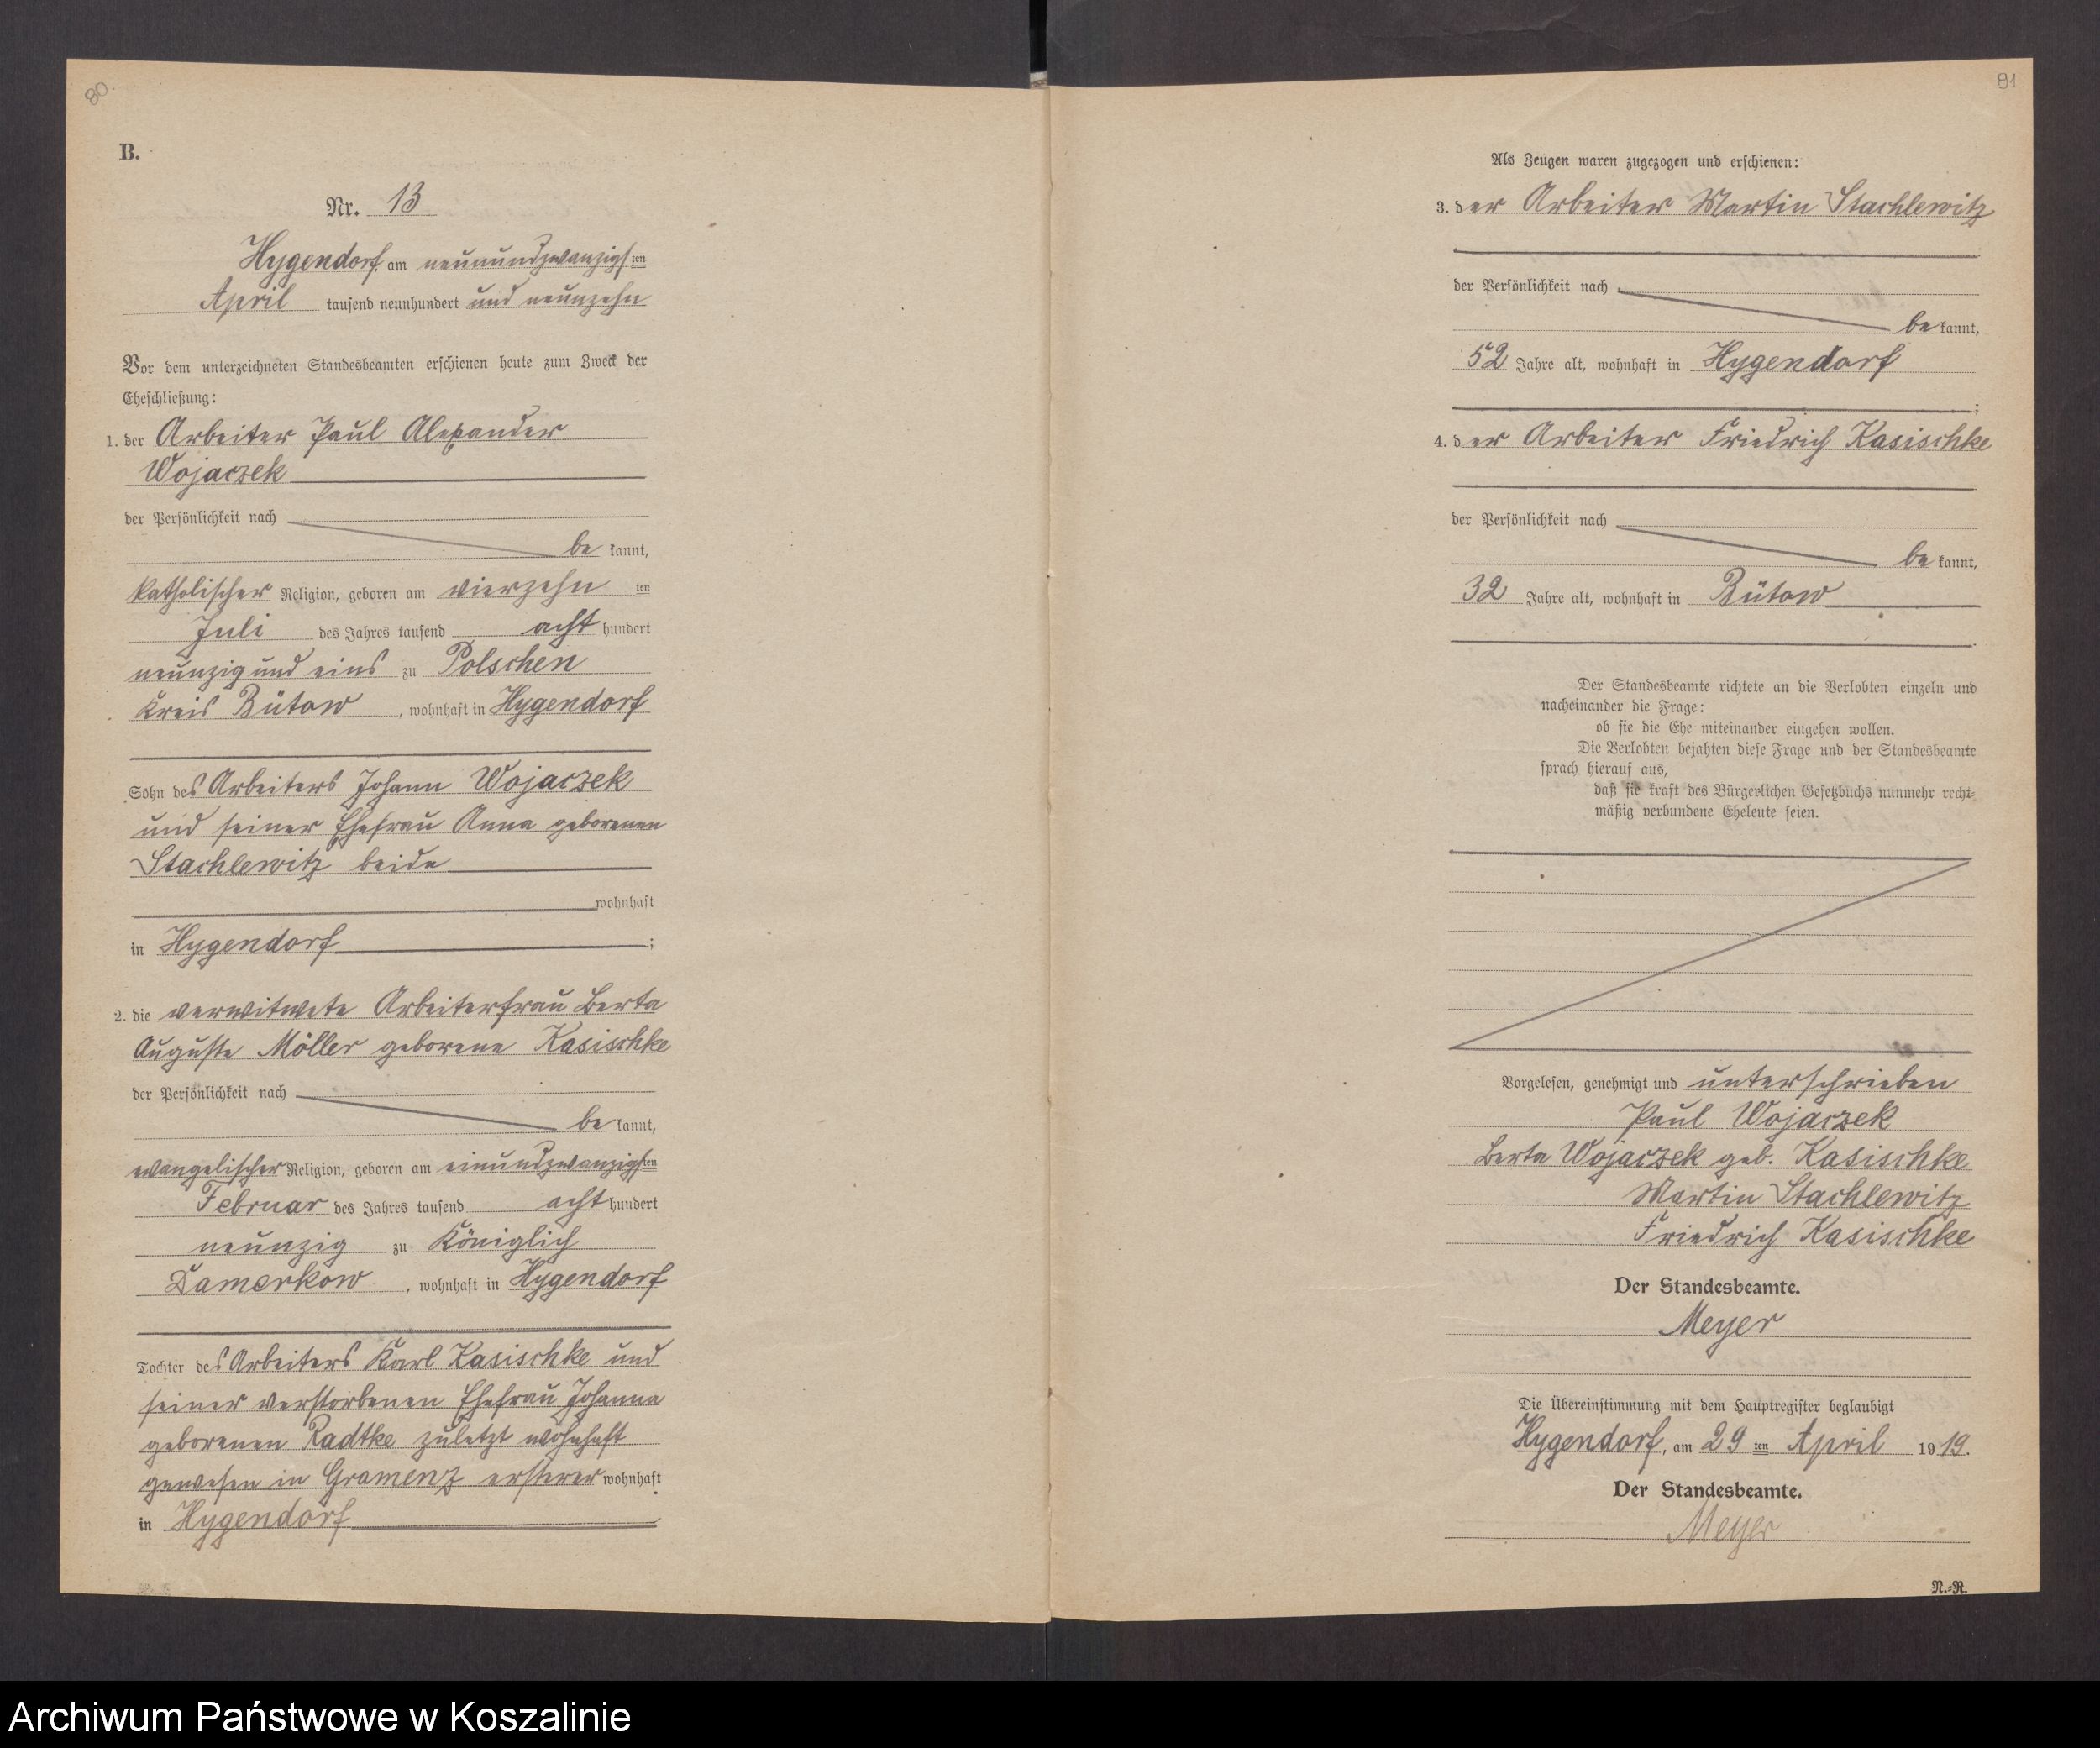 80.
B.
Nr. 13
Hygendorf, am neunundzwanzigsten
April tausend neunhundert und neunzehn
Vor dem unterzeichneten Standesbeamten erschienen heute zum Zweck der
Eheschließung:
1. der Arbeiter Paul Alexander
Wojaczek
der Persönlichkeit nach
be kannt,
katholischer Religion, geboren am vierzehn ten
Juli des Jahres tausend acht hundert
neunzig und eins zu Polschen
Kreis Bütow, wohnhaft in Hygendorf
Sohn des Arbeiters Johann Wojaczek
und seiner Ehefrau Anna geborenen
Stachlewitz beide
wohnhaft
in Hygendorf;
2. die verwitwete Arbeiterfrau Berta
Auguste Möller geborene Kasischke
der Persönlichkeit nach
be kannt,
evangelischer Religion, geboren am einundzwanzigsten
Februar des Jahres tausend acht hundert
neunzig zu Königlich
Damerkow, wohnhaft in Hygendorf
Tochter des Arbeiters Karl Kasischke und
seiner verstorbenen Ehefrau Johanna
geborenen Radtke zuletzt wohnhaft
gewesen in Gramenz ersterer wohnhaft
in Hygendorf.
81
Als Zeugen waren zugezogen und erschienen:
3. der Arbeiter Martin Stachlewitz
der Persönlichkeit nach
be kannt,
52 Jahre alt, wohnhaft in Hygendorf
;
4. der Arbeiter Friedrich Kasischke
der Persönlichkeit nach
be kannt,
32 Jahre alt, wohnhaft in Bütow
Der Standesbeamte richtete an die Verlobten einzeln und
nacheinander die Frage:
ob sie die Ehe miteinander eingehen wollen.
Die Verlobten bejahten diese Frage und der Standesbeamte
sprach hierauf aus,
daß sie kraft des Bürgerlichen Gesetzbuchs nunmehr recht-
mäßig verbundene Eheleute seien.
Vorgelesen, genehmigt und unterschrieben
Paul Wojaczek
Berta Wojaczek geb. Kasischke
Martin Stachlewitz
Friedrich Kasischke
Der Standesbeamte.
Meyer
Die Übereinstimmung mit dem Hauptregister beglaubigt
Hygendorf, am 29 ten April 1919.
Der Standesbeamte.
Meyer
N.-R.
Archiwum Państwowe w Koszalinie